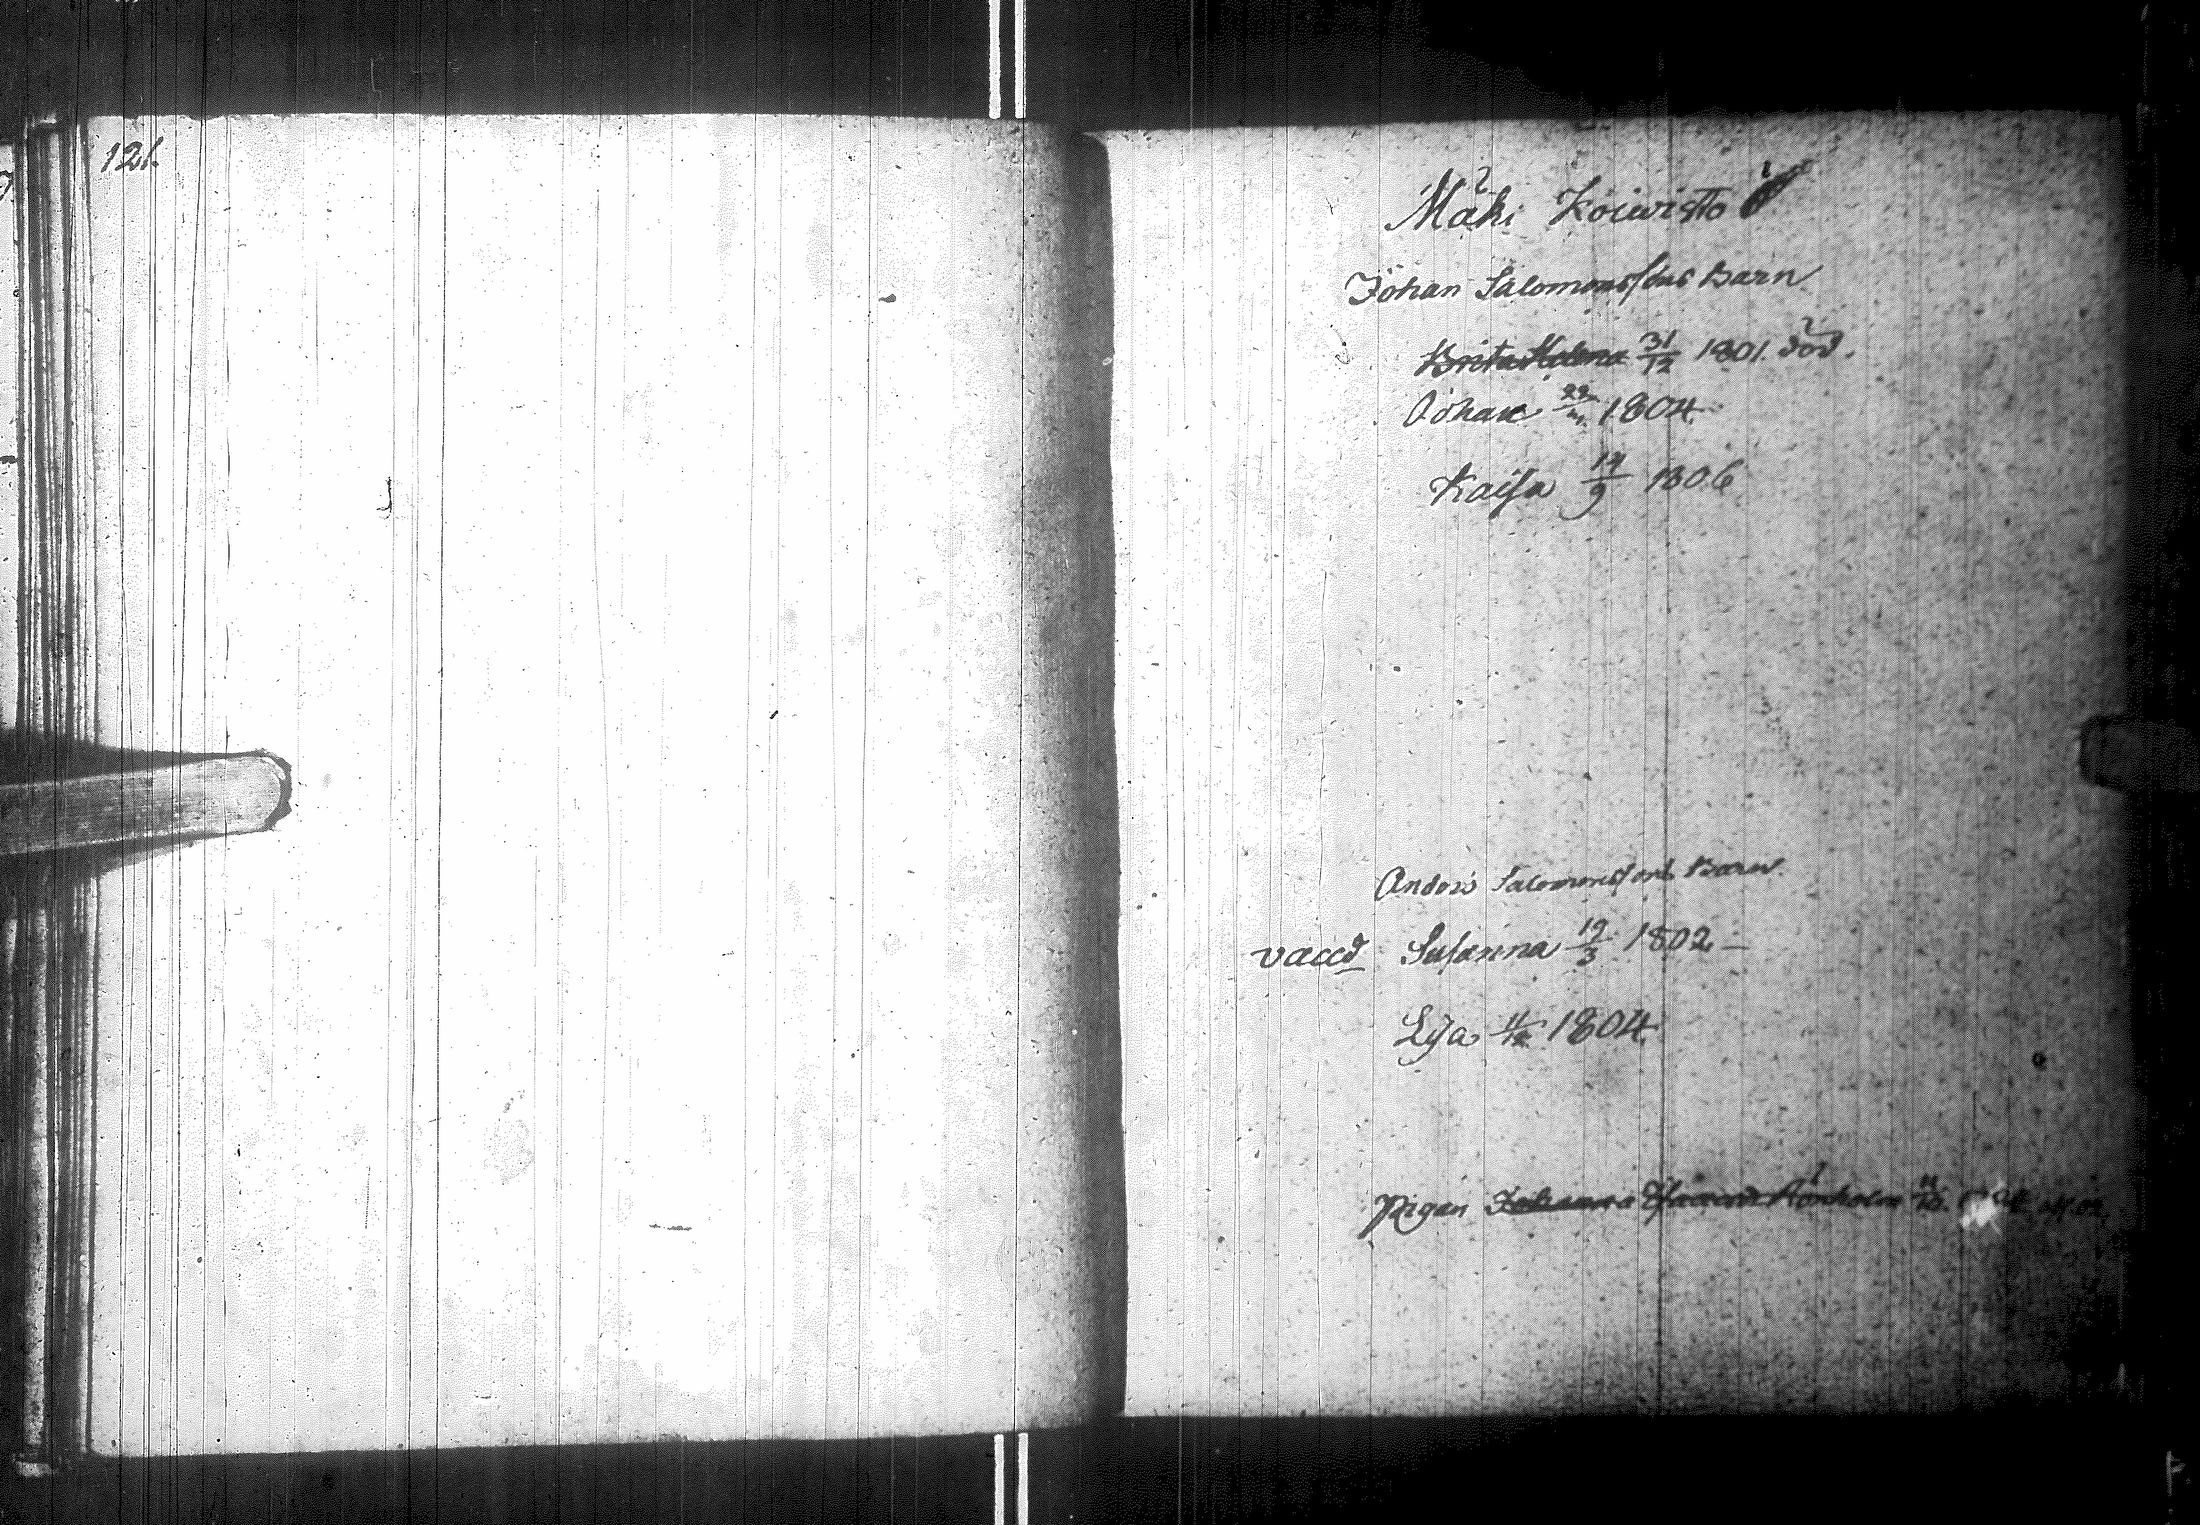 121.
Mäki Koivisto
Johan Salomonssons Barn
Brita Helena 31/12 1801. död.
Johan 1804.
Kaisa 14/9 1806
Anders Salomonssons Barn
vaccd Susanna 19/3 1802 –
Lisa 1804.
Pigan Johanna